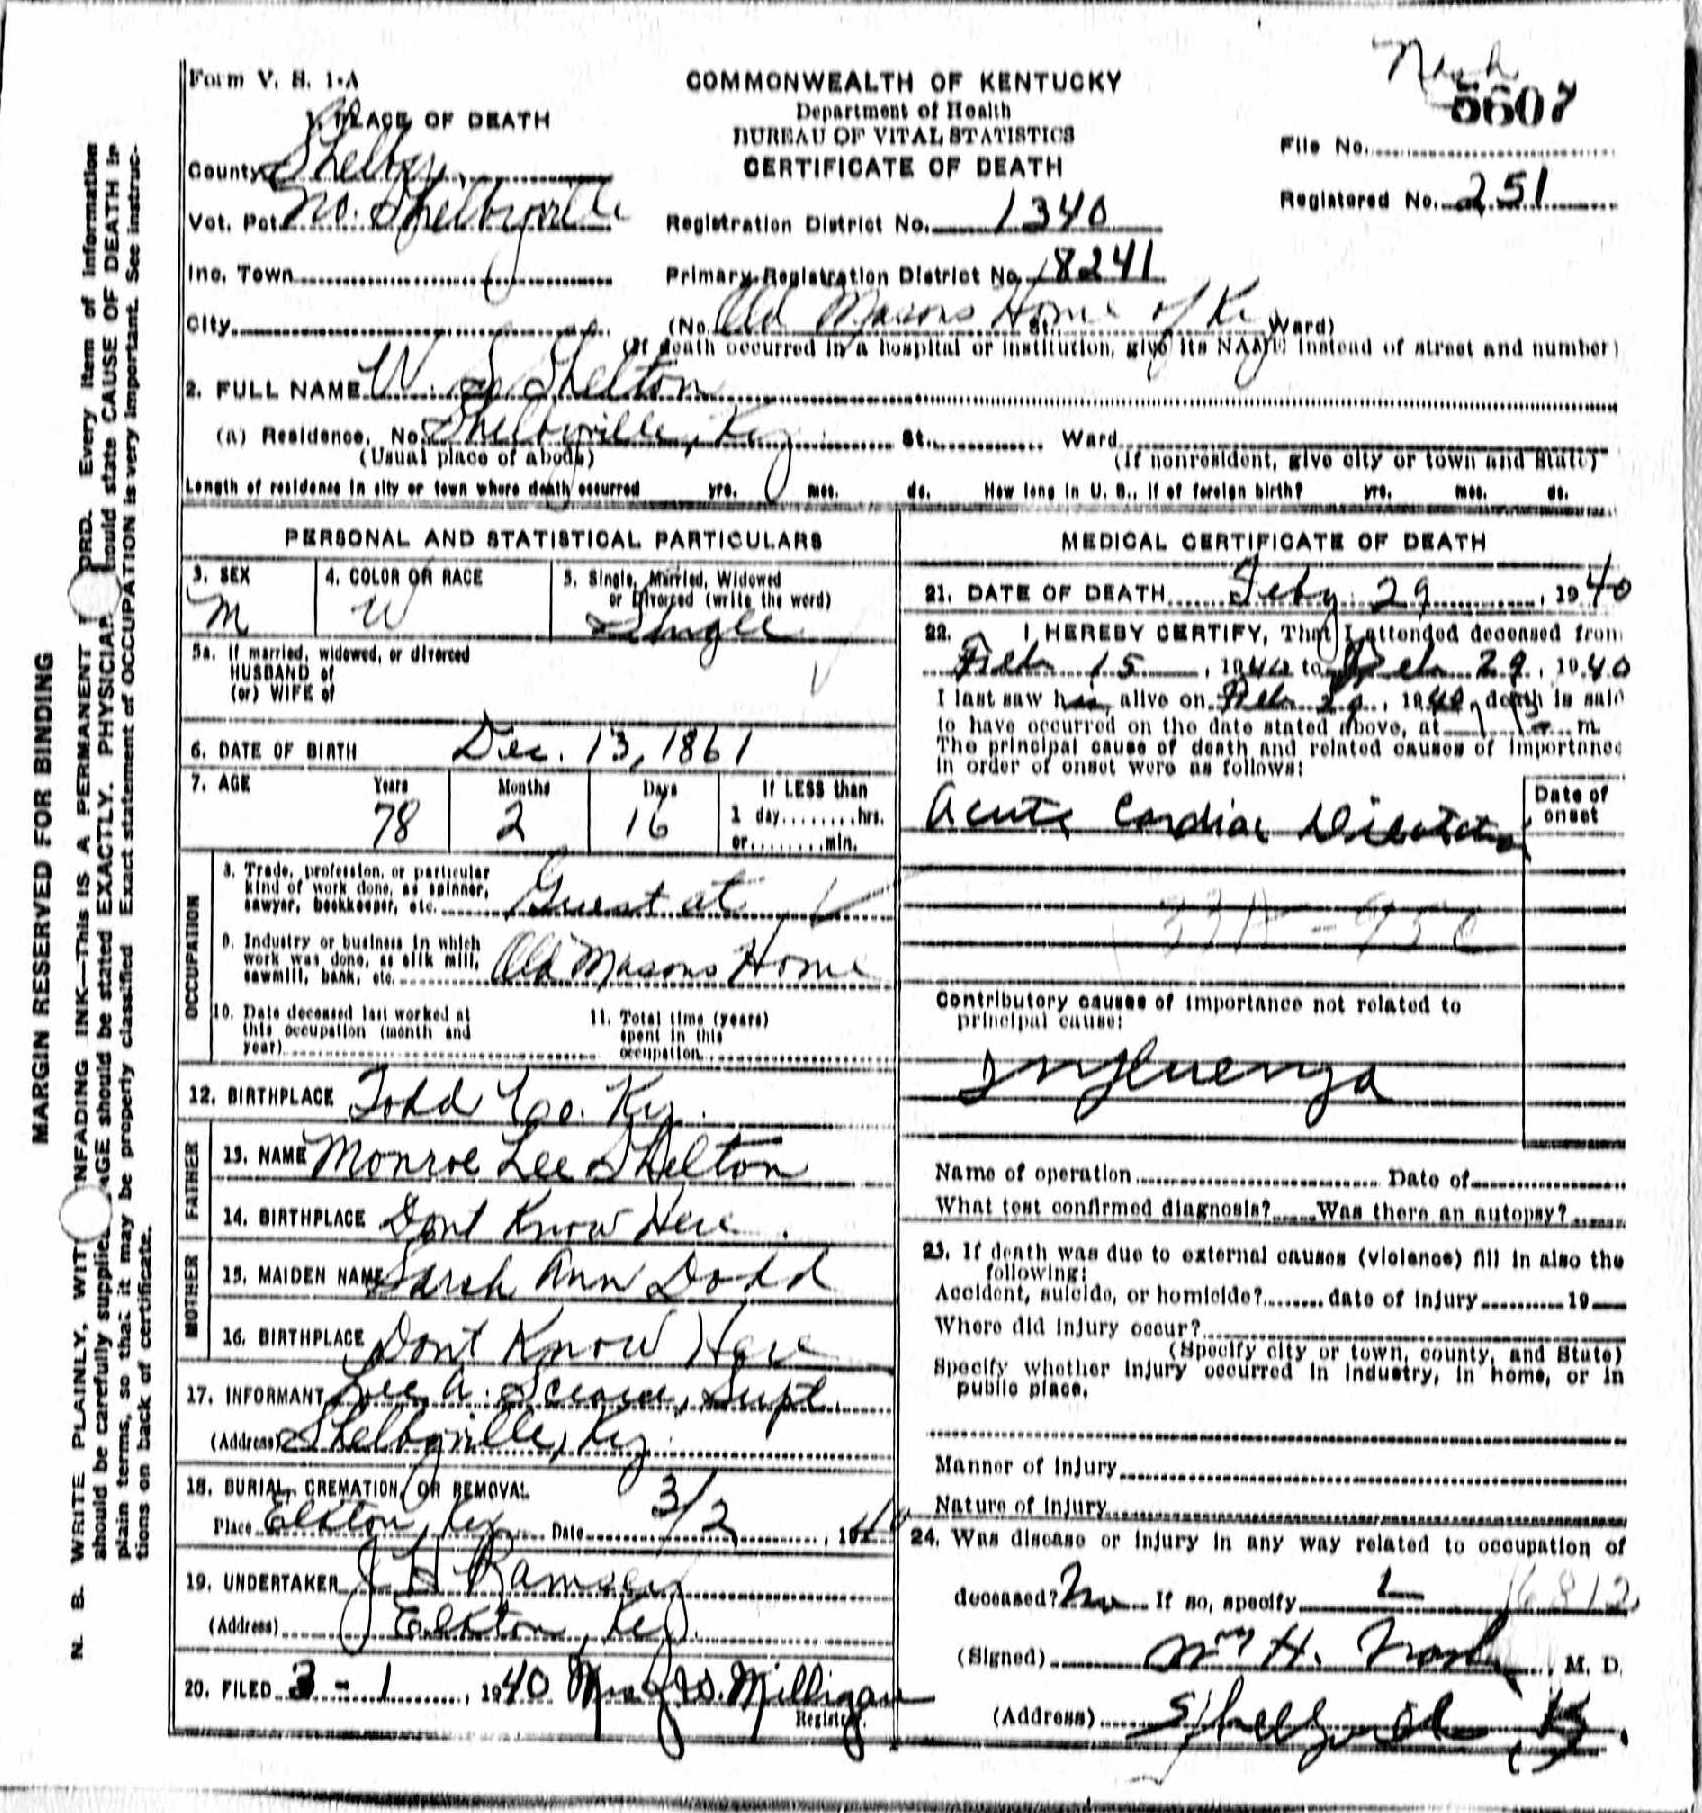 Form V. S. 1-A
COMMONWEALTH OF KENTUCKY
Department of Health
BUREAU OF VITAL STATISTICS
CERTIFICATE OF DEATH
5607
File No.
Registered No. 251
1. PLACE OF DEATH
County Shelby
Vot. Pct. No. Shelbyville
Registration District No. 1340
Inc. Town
Primary Registration District No. 18241
City
(No. Old Masons Home of Ky St. Ward)
(If death occurred in a hospital or institution, give its NAME instead of street and number)
2. FULL NAME W. S. Shelton
(a) Residence, No. Shelbyville, Ky St. Ward
(Usual place of abode)
(If nonresident, give city or town and State)
Length of residence in city or town where death occurred yrs. mos. ds. How long in U. S., if of foreign birth? yrs. mos. ds.
PERSONAL AND STATISTICAL PARTICULARS
3. SEX
M
4. COLOR OR RACE
W
5. Single, Married, Widowed
or Divorced (write the word)
Single
5a. If married, widowed, or divorced
HUSBAND of
(or) WIFE of
6. DATE OF BIRTH Dec. 13, 1861
7. AGE Years Months Days If LESS than
78 2 16 1 day........hrs.
or........min.
OCCUPATION
8. Trade, profession, or particular
kind of work done, as spinner,
sawyer, bookkeeper, etc. Guest at
9. Industry or business in which
work was done, as silk mill,
sawmill, bank, etc. Old Masons Home
10. Date deceased last worked at
this occupation (month and
year)
11. Total time (years)
spent in this
occupation
12. BIRTHPLACE Todd Co. Ky.
FATHER
13. NAME Monroe Lee Shelton
14. BIRTHPLACE Dont Know Here.
MOTHER
15. MAIDEN NAME Sarah Ann Dodd
16. BIRTHPLACE Dont Know Here
17. INFORMANT Lee A. Supt.
(Address) Shelbyville, Ky.
18. BURIAL, CREMATION, OR REMOVAL
Place Elkton, Ky. Date 3/2, 1940
19. UNDERTAKER J H Ramsey
(Address) Elkton, Ky.
20. FILED 3-1, 1940 Milligan
Registrar.
MEDICAL CERTIFICATE OF DEATH
21. DATE OF DEATH Feby 29, 1940
22. I HEREBY CERTIFY, That I attended deceased from
Feb 15, 1940 to Feb 29, 1940
I last saw him alive on Feb 29, 1940, death is said
to have occurred on the date stated above, at m.
The principal cause of death and related causes of importance
in order of onset were as follows:
Date of
onset
Acute Cardiac Dilatation
Contributory causes of importance not related to
principal cause:
Influenza
Name of operation Date of
What test confirmed diagnosis? Was there an autopsy?
23. If death was due to external causes (violence) fill in also the
following:
Accident, suicide, or homicide? date of injury 19
Where did injury occur?
(Specify city or town, county, and State)
Specify whether injury occurred in industry, in home, or in
public place.
Manner of injury
Nature of injury
24. Was disease or injury in any way related to occupation of
deceased? No If so, specify
(Signed) Wm H. Nash, M. D.
(Address) Shelbyville Ky.
MARGIN RESERVED FOR BINDING
N. B. WRITE PLAINLY, WITH UNFADING INK—THIS IS A PERMANENT RECORD. Every item of information
should be carefully supplied. AGE should be stated EXACTLY. PHYSICIANS should state CAUSE OF DEATH in
plain terms, so that it may be properly classified. Exact statement of OCCUPATION is very important. See instruc-
tions on back of certificate.